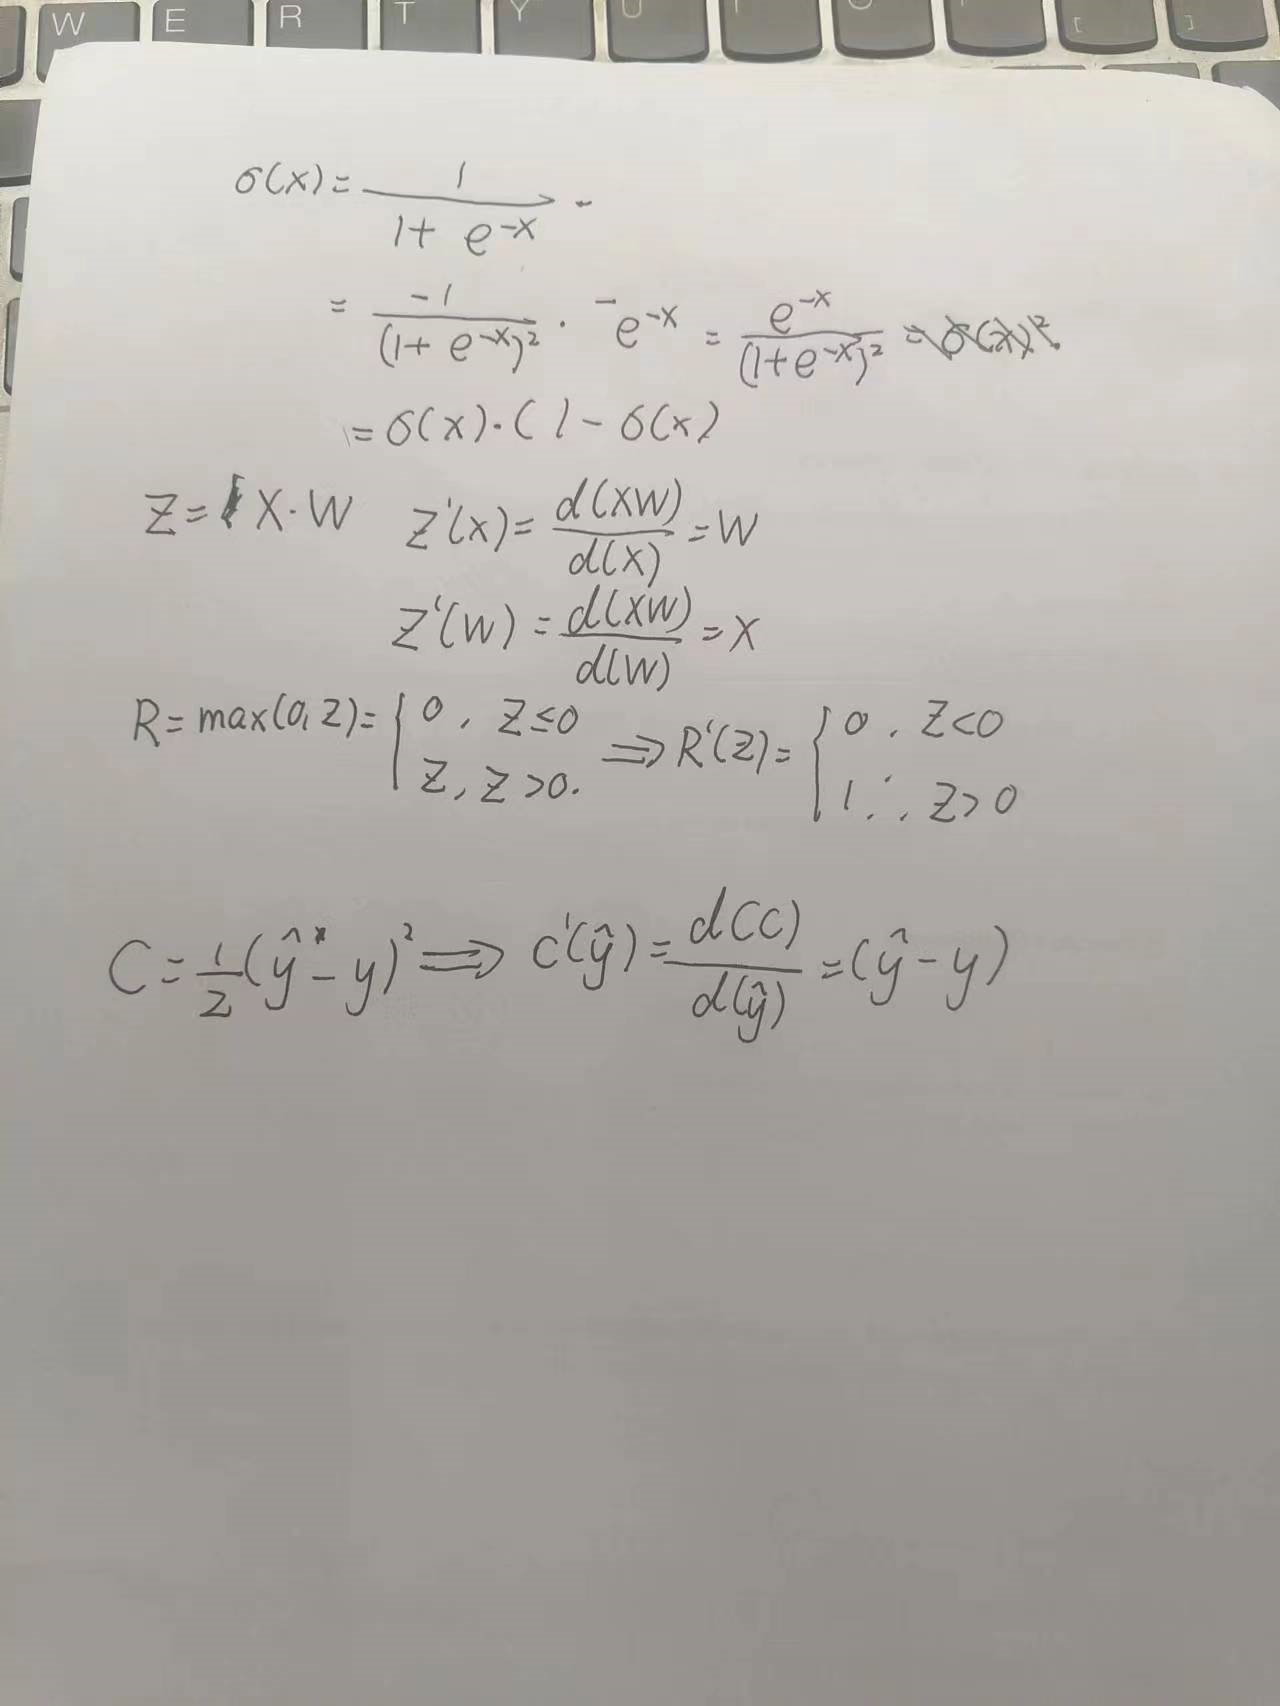 W E R T Y U I O [ ]
σ(x) = 1 / (1 + e^-x)
= -1 / (1 + e^-x)^2 · -e^-x = e^-x / (1 + e^-x)^2 = σ(x)^2
= σ(x) · (1 - σ(x)
Z = X · W Z'(x) = d(XW) / d(X) = W
Z'(W) = d(XW) / d(W) = X
R = max(0, Z) = { 0, Z ≤ 0 ; Z, Z > 0. ⟹ R'(Z) = { 0, Z < 0 ; 1, Z > 0
C = 1/2 (ŷ - y)^2 ⟹ C'(ŷ) = d(C) / d(ŷ) = (ŷ - y)